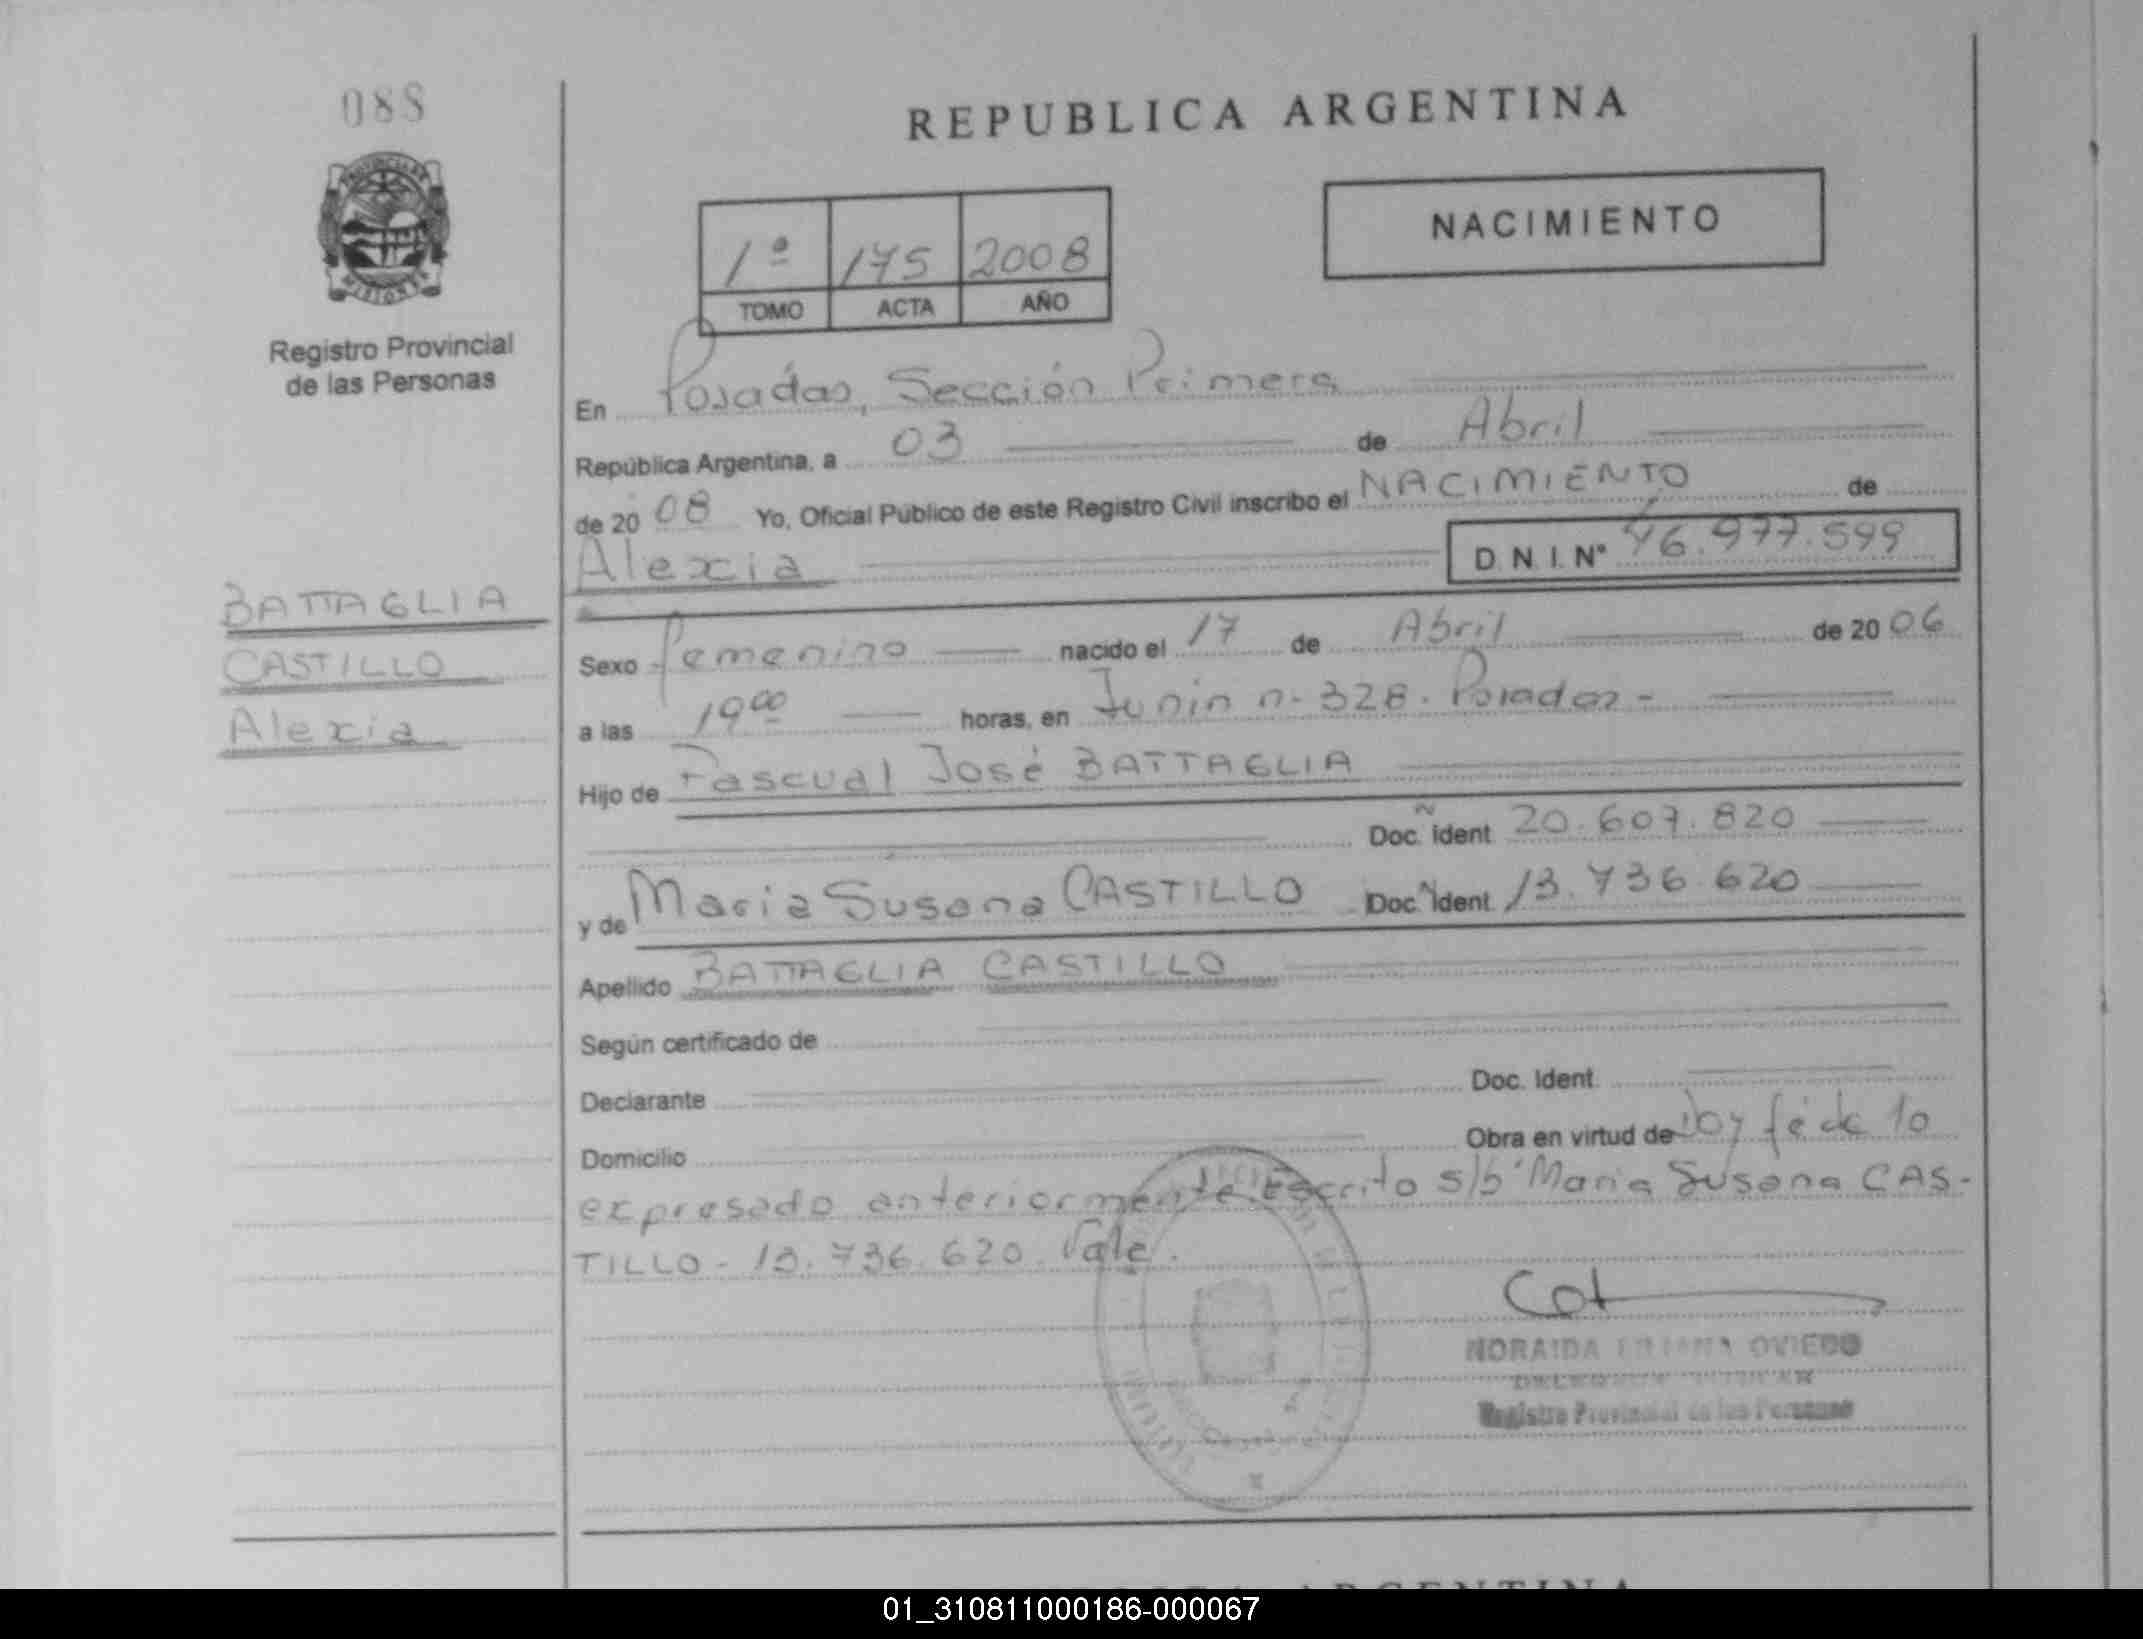 088
REPUBLICA ARGENTINA
NACIMIENTO
1ª 175 2008
TOMO ACTA AÑO
MISIONES
Registro Provincial
de las Personas
En Posadas, Sección Primera
República Argentina, a 03 de Abril
de 2008 Yo, Oficial Público de este Registro Civil inscribo el NACIMIENTO de
Alexia D.N.I. Nº 46.977.599
BATTAGLIA
CASTILLO
Alexia
Sexo femenino nacido el 17 de Abril de 2006
a las 19 00 horas, en Junin n- 328. Posadas -
Hijo de Pascual José BATTAGLIA
Doc. ident. 20.607.820
y de Maria Susana CASTILLO Doc. Ident. 13.736.620
Apellido BATTAGLIA CASTILLO
Según certificado de
Declarante Doc. Ident.
Domicilio Obra en virtud de doy fé de lo
expresado anteriormente. Escrito s/b Maria Susana CAS-
TILLO - 13.736.620. Vale.
NORAIDA OVIEDO
Registro Provincial de las Personas
ARGENTINA
01_310811000186-000067